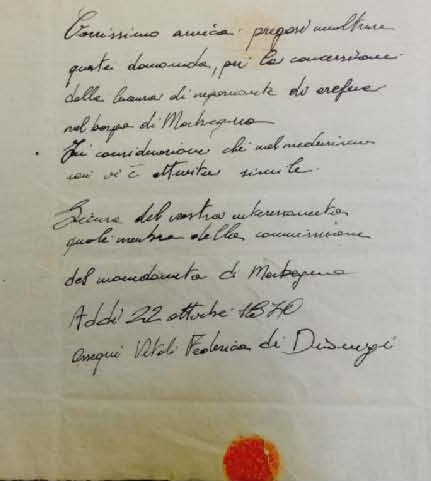 Carissimo amico pregasi inoltrare
questa domanda, per la concessione
della licenza di negoziante di
nel borgo di Morbegno
In considerazione che nel medesimo
non vi è attività simile.
Sicura del vostro interessamento
quale membro della commissione
del mandamento di Morbegno
Addì 22 ottobre 1870
ossequi Vitali Federica di